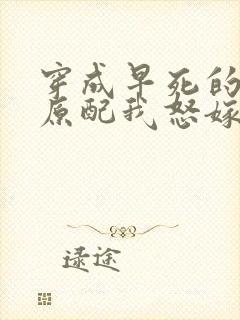 穿成早死的
原配我怒嫁
逯途